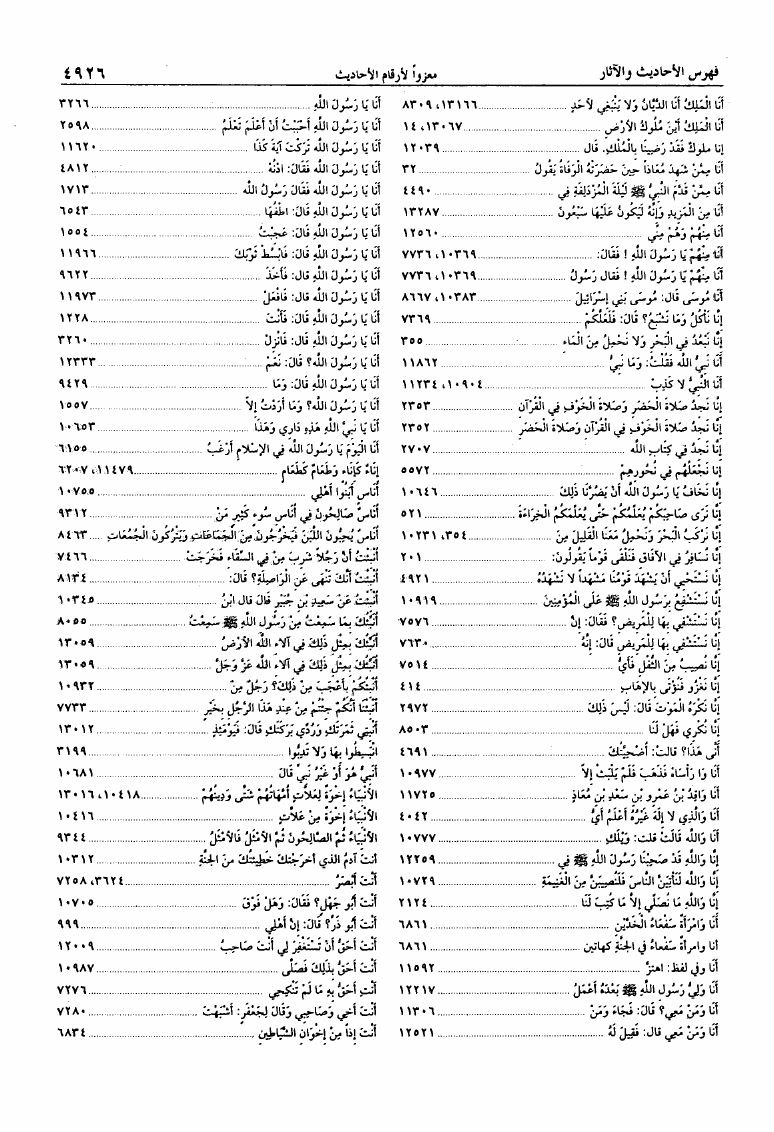 فهرس الأحاديث والآثار
معزواً لأرقام الأحاديث
٤٩٢٦
أَنَا الْمَلِكُ أَنَا الدَّيَّانُ وَلا يَنْبَغِي لأَحَدٍ ١٣١٦٦، ٨٣٠٩
أَنَا الْمَلِكُ أَيْنَ مُلُوكُ الأَرْضِ ١٣٠٦٧، ١٤
إنا ملوكٌ فَقَدْ رَضِينَا بِالْمُلْكِ. قال ١٢٠٣٩
أَنَا مِمَّنْ شَهِدَ مُعَاذاً حِينَ حَضَرَتْهُ الْوَفَاةُ يَقُولُ ٣٢
أَنَا مِمَّنْ قَدَّمَ النَّبِيُّ ﷺ لَيْلَةَ الْمُزْدَلِفَةِ فِي ٤٤٩٠
أَنَا مِنَ الْمَزِيدِ وَإِنَّهُ لَيَكُونُ عَلَيْهَا سَبْعُونَ ١٣٢٨٧
أَنَا مِنْهُمْ وَهُمْ مِنِّي ١٢٥٦٠
أَنَا مِنْهُمْ يَا رَسُولَ اللهِ ! فَقَالَ: ١٠٣٦٩، ٧٧٣٦
أَنَا مِنْهُمْ يَا رَسُولَ اللهِ ! فقال رَسُولُ ١٠٣٦٩، ٧٧٣٦
أَنَا مُوسَى قال: مُوسَى بَنِي إِسْرَائِيلَ ١٠٣٨٣، ٨٦٦٧
إِنَّا نَأْكُلُ وَمَا نَشْبَعُ؟ قَالَ: فَلَعَلَّكُمْ ٧٣٦٩
إِنَّا نَبْعُدُ فِي الْبَحْرِ وَلا نَحْمِلُ مِنَ الْمَاءِ ٣٥٥
أَنَا نَبِيُّ الله فَقُلْتُ: وَمَا نَبِيُّ ١١٨٦٢
أَنَا النَّبِيُّ لا كَذِبْ ١٠٩٠٤، ١١٢٣٤
إِنَّا نَجِدُ صَلاةَ الْحَضَرِ وَصَلاةَ الْخَوْفِ فِي الْقُرْآنِ ٢٣٥٣
إِنَّا نَجِدُ صَلاةَ الْخَوْفِ فِي الْقُرْآنِ وَصَلاةَ الْحَضَرِ ٢٣٥٢
إِنَّا نَجِدُ فِي كِتَابِ الله ٢٧٠٧
إِنَّا نَجْعَلُهُمْ فِي نُحُورِهِمْ ٥٥٧٢
إِنَّا نَخَافُ يَا رَسُولَ الله أَنْ يَضُرَّنَا ذَلِكَ ١٠٦٤٦
إِنَّا نَرَى صَاحِبَكُمْ يُعَلِّمُكُمْ حَتَّى يُعَلِّمَكُمُ الْخِرَاءَةَ ٥٢١
إِنَّا نَرْكَبُ الْبَحْرَ وَنَحْمِلُ مَعَنَا الْقَلِيلَ مِنَ ٣٥٤، ١٠٢٣١
إِنَّا نُسَافِرُ فِي الآفَاقِ فَنَلْقَى قَوْماً يَقُولُونَ: ٢٠١
إِنَّا نَسْتَحْيِي أَنْ يَشْهَدَ قَوْمُنَا مَشْهَداً لا نَشْهَدُهُ ٤٩٢١
إِنَّا نَسْتَشْفِعُ بِرَسُولِ اللهِ ﷺ عَلَى الْمُؤْمِنِينَ ١٠٩١٩
إِنَّا نَسْتَشْفِي بِهَا لِلْمَرِيضِ؟ فَقَالَ: إِنَّ ٧٥٧٦
إِنَّا نَسْتَشْفِي بِهَا لِلْمَرِيضِ قَالَ: إِنَّهُ ٧٦٣٠
إِنَّا نُصِيبُ مِنَ الثُّفْلِ فَأَيُّ ٧٥١٤
إِنَّا نَغْزُو فَنُؤْتَى بِالإِهَابِ ٤١٤
إِنَّا نَكْرَهُ الْمَوْتَ قَالَ: لَيْسَ ذَلِكَ ٢٩٧٢
إِنَّا نُكْرِي فَهَلْ لَنَا ٨٥٠٣
أَنَّى هَذَا؟ قالت: أُضْحِيَّتُكَ ٤٦٩١
أَنَا وَا رَأْسَاهُ فَذَهَبَ فَلَمْ يَلْبَثْ إِلاَّ ١٠٩٧٧
أَنَا وَاقِدُ بْنُ عَمْرِو بْنِ سَعْدِ بْنِ مُعَاذٍ ١١٧٢٥
أَنَا وَالَّذِي لا إِلَهَ غَيْرُهُ أَعْلَمُ أَيُّ ٤٠٤٢
أَنَا وَاللهِ قَالَتْ قلت: وَيْلَكِ ١٠٧٧٧
إِنَّا وَاللهِ قَدْ صَحِبْنَا رَسُولَ اللهِ ﷺ فِي ١٢٢٥٩
إِنَّا وَاللهِ لَنَأْتِيَنَّ النَّاسَ فَلَنُصِيبَنَّ مِنَ الْغَنِيمَةِ ١٠٧٢٩
إِنَّا وَاللهِ مَا نُصَلِّي إِلاَّ مَا كُتِبَ لَنَا ٢١٢٤
أَنَا وَامْرَأَةٌ سَفْعَاءُ الْخَدَّيْنِ ٦٨٦١
أنا وامرأة سفعاءُ فِي الجنَّةِ كهاتين ٦٨٦١
أَنَا وفي لفظ: اهتزَّ ١١٥٩٢
أَنَا وَلِيُّ رَسُولِ اللهِ ﷺ بَعْدَهُ أَعْمَلُ ١٢٢١٧
أَنَا وَمَنْ مَعِي؟ قَالَ: فَجَاءَ وَمَنْ ١١٣٠٦
أَنَا وَمَنْ مَعِي قال: فَقِيلَ لَهُ ١٢٥٢١
أَنَا يَا رَسُولَ اللهِ ٣٢٦٦
أَنَا يَا رَسُولَ اللهِ أَحْبَبْتُ أَنْ أَعْلَمَ تَعْلَمُ ٢٥٩٨
أَنَا يَا رَسُولَ اللهِ تَرَكْتَ آيَةَ كَذَا ١١٦٢٠
أَنَا يَا رَسُولَ الله فَقَالَ: ادْنُهْ ٤٨١٢
أَنَا يَا رَسُولَ الله فَقَالَ رَسُولُ الله ١٧١٣
أَنَا يَا رَسُولَ اللهِ قَالَ: اطْفُهَا ٦٥٤٣
أَنَا يَا رَسُولَ اللهِ قَالَ: عَجِبْتُ ١٥٥٤
أَنَا يَا رَسُولَ اللهِ قَالَ: فَابْسُطْ ثَوْبَكَ ١١٩٦٦
أَنَا يَا رَسُولَ الله قال: فَأَخَذَ ٩٦٢٢
أَنَا يَا رَسُولَ الله قال: فَافْعَلْ ١١٩٧٣
أَنَا يَا رَسُولَ الله قَالَ: فَأَنْتَ ١٢٢٨
أَنَا يَا رَسُولَ الله قَالَ: فَانْزِلْ ٣٢٦٠
أَنَا يَا رَسُولَ الله؟ قَالَ: نَعَمْ ١٢٣٣٣
أَنَا يَا رَسُولَ اللهِ قَالَ: وَمَا ٩٤٢٩
أَنَا يَا رَسُولَ الله؟ وَمَا أَرَدْتُ إِلاَّ ١٥٥٧
أَنَا يَا نَبِيَّ اللهِ هَذِهِ دَارِي وَهَذَا ١٠٦٥٣
أَنَا الْيَوْمَ يَا رَسُولَ الله فِي الإِسْلامِ أَرْغَبُ ٦١٥٥
إِنَاءٌ كَإِنَاءٍ وَطَعَامٌ كَطَعَامٍ ١١٤٧٩، ٦٢٠٧
أُنَاسٍ أَبَنُوا أَهْلِي ١٠٧٥٥
أُنَاسٌ صَالِحُونَ فِي أُنَاسِ سُوءٍ كَثِيرٍ مَنْ ٩٣١٢
أُنَاسٌ يُحِبُّونَ اللَّبَنَ فَيَخْرُجُونَ مِنَ الْجَمَاعَاتِ وَيَتْرُكُونَ الْجُمُعَاتِ ٨٤٦٣
أُنْبِئْتُ أَنَّ رَجُلاً شَرِبَ مِنْ فِي السِّقَاءِ فَخَرَجَتْ ٧٤٦٦
أُنْبِئْتُ أَنَّكَ تَنْهَى عَنِ الْوَاصِلَةِ؟ قَالَ: ٨١٣٤
أُنْبِئْتُ عَنْ سَعِيدِ بْنِ جُبَيْرٍ قَالَ قال ابْنُ ١٠٣٤٥
أُنَبِّئُكَ بِمَا سَمِعْتُ مِنْ رَسُولِ اللهِ ﷺ سَمِعْتُ ٨٠٥٥
أُنَبِّئُكَ بِمِثْلِ ذَلِكَ فِي آلاءِ اللهِ الأَرْضُ ١٣٠٥٩
أُنَبِّئُكَ بِمِثْلِ ذَلِكَ فِي آلاءِ اللهِ عَزَّ وَجَلَّ ١٣٠٥٩
أُنَبِّئُكُمْ بِأَعْجَبَ مِنْ ذَلِكَ؟ رَجُلٌ مِنْ ١٠٩٣٢
أُنْبِئْنَا أَنَّكُمْ جِئْتُمْ مِنْ عِنْدِ هَذَا الرَّجُلِ بِخَيْرٍ ٧٧٣٣
أَنْبِتِي ثَمَرَتَكِ وَرُدِّي بَرَكَتَكِ قَالَ: فَيَوْمَئِذٍ ١٣٠١٢
انْبَسِطُوا بِهَا وَلا تَدِبُّوا ٣١٩٩
أَنَبِيٌّ هُوَ أَوْ غَيْرُ نَبِيٍّ قَالَ ١٠٦٨١
الأَنْبِيَاءُ إِخْوَةٌ لِعَلاَّتٍ أُمَّهَاتُهُمْ شَتَّى وَدِينُهُمْ ١٠٤١٨، ١٣٠١٦
الأَنْبِيَاءُ إِخْوَةٌ مِنْ عَلاَّتٍ ١٠٤١٦
الأَنْبِيَاءُ ثُمَّ الصَّالِحُونَ ثُمَّ الأَمْثَلُ فَالأَمْثَلُ ٩٣٤٤
أنت آدمُ الذي أخرجتك خطيئتك منَ الجنَّةِ ١٠٣١٢
أَنْتَ أَبْصَرُ ٣٦٢٤، ٧٢٥٨
أَنْتَ أَبُو جَهْلٍ؟ فَقَالَ: وَهَلْ فَوْقَ ١٠٧٠٥
أَنْتَ أَبُو ذَرٍّ؟ قَالَ: إِنَّ أَهْلِي ٩٩٩
أَنْتَ أَحَقُّ أَنْ تَسْتَغْفِرَ لِي أَنْتَ صَاحِبُ ١٢٠٠٩
أَنْتَ أَحَقُّ بِذَلِكَ فَصَلَّى ١٠٩٨٧
أَنْتِ أَحَقُّ بِهِ مَا لَمْ تَنْكِحِي ٧٢٧٦
أَنْتَ أَخِي وَصَاحِبِي وَقَالَ لِجَعْفَرٍ: أَشْبَهْتَ ٧٢٨٠
أَنْتَ إِذاً مِنْ إِخْوَانِ الشَّيَاطِينِ ٦٨٣٤